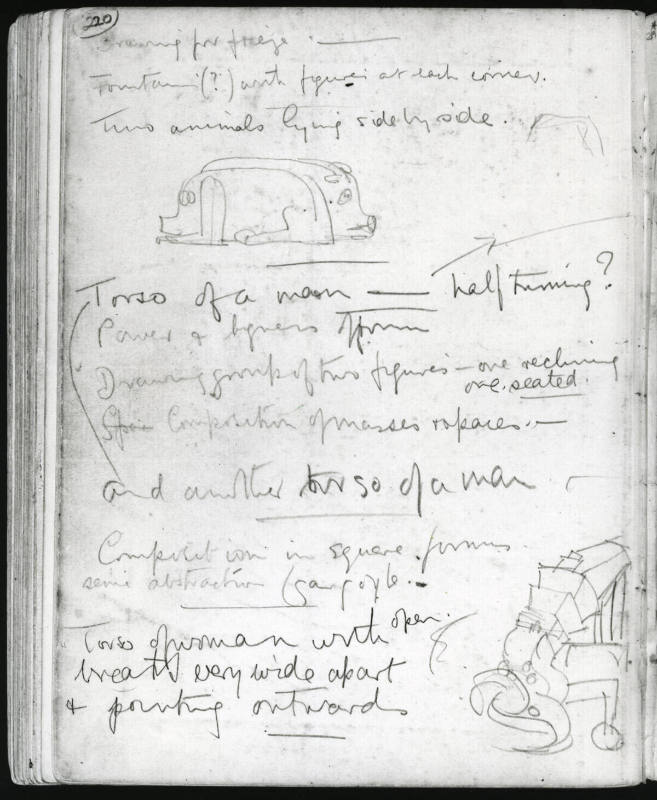 220
Drawing for frieze.
Fountain (?) with figures at each corner.
Two animals lying side by side.
Torso of a man — half turning?
Power & bigness of form
Drawing group of two figures – one reclining
one seated.
Composition of masses & spaces. –
and another torso of a man
Composition in square forms
semi abstraction (gargoyle. –
Torso of woman with open
breasts very wide apart
& pointing outwards